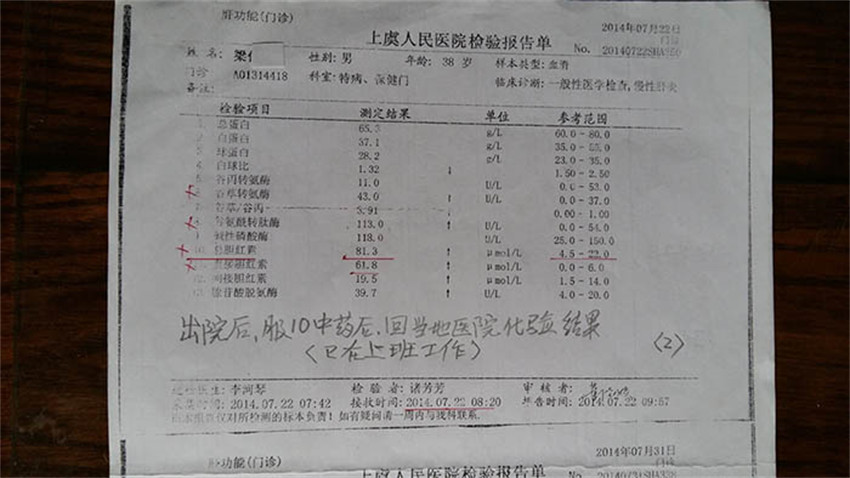 肝功能(门诊) 2014年07月22日
上虞人民医院检验报告单 门诊
No. 20140722SHA
姓名: 梁 性别: 男 年龄: 38 岁 样本类型: 血清
门诊 A01314418 科室: 特病、保健门 临床诊断: 一般性医学检查, 慢性肝炎
备注:
检验项目 测定结果 单位 参考范围
1 总蛋白 65.3 g/L 60.0 - 80.0
2 白蛋白 37.1 g/L 35.0 - 55.0
3 球蛋白 28.2 g/L 23.0 - 35.0
4 白球比 1.32 ↓ 1.50 - 2.50
5 谷丙转氨酶 11.0 U/L 0.0 - 53.0
谷草转氨酶 43.0 ↑ U/L 0.0 - 37.0
谷草/谷丙 3.91 ↑ 0.00 - 1.00
谷氨酰转肽酶 113.0 ↑ U/L 0.0 - 54.0
碱性磷酸酶 118.0 U/L 25.0 - 150.0
10 总胆红素 81.3 ↑ μmol/L 4.5 - 22.0
直接胆红素 61.8 ↑ μmol/L 0.0 - 6.0
12 间接胆红素 19.5 ↑ μmol/L 1.5 - 14.0
腺苷酸脱氨酶 39.7 ↑ U/L 4.0 - 20.0
出院后, 服10中药后, 回当地医院化验结果
(已在上班工作) (2)
送检医生: 李润琴 检 验 者: 诸芳芳 审 核 者:
采集时间: 2014.07.22 07:42 接收时间: 2014.07.22 08:20 报告时间: 2014.07.22 09:57
本报告仅对所检测的标本负责! 如有疑问请一周内与我科联系.
肝功能(门诊) 2014年07月31日
上虞人民医院检验报告单 门诊
No. 20140731SHA338